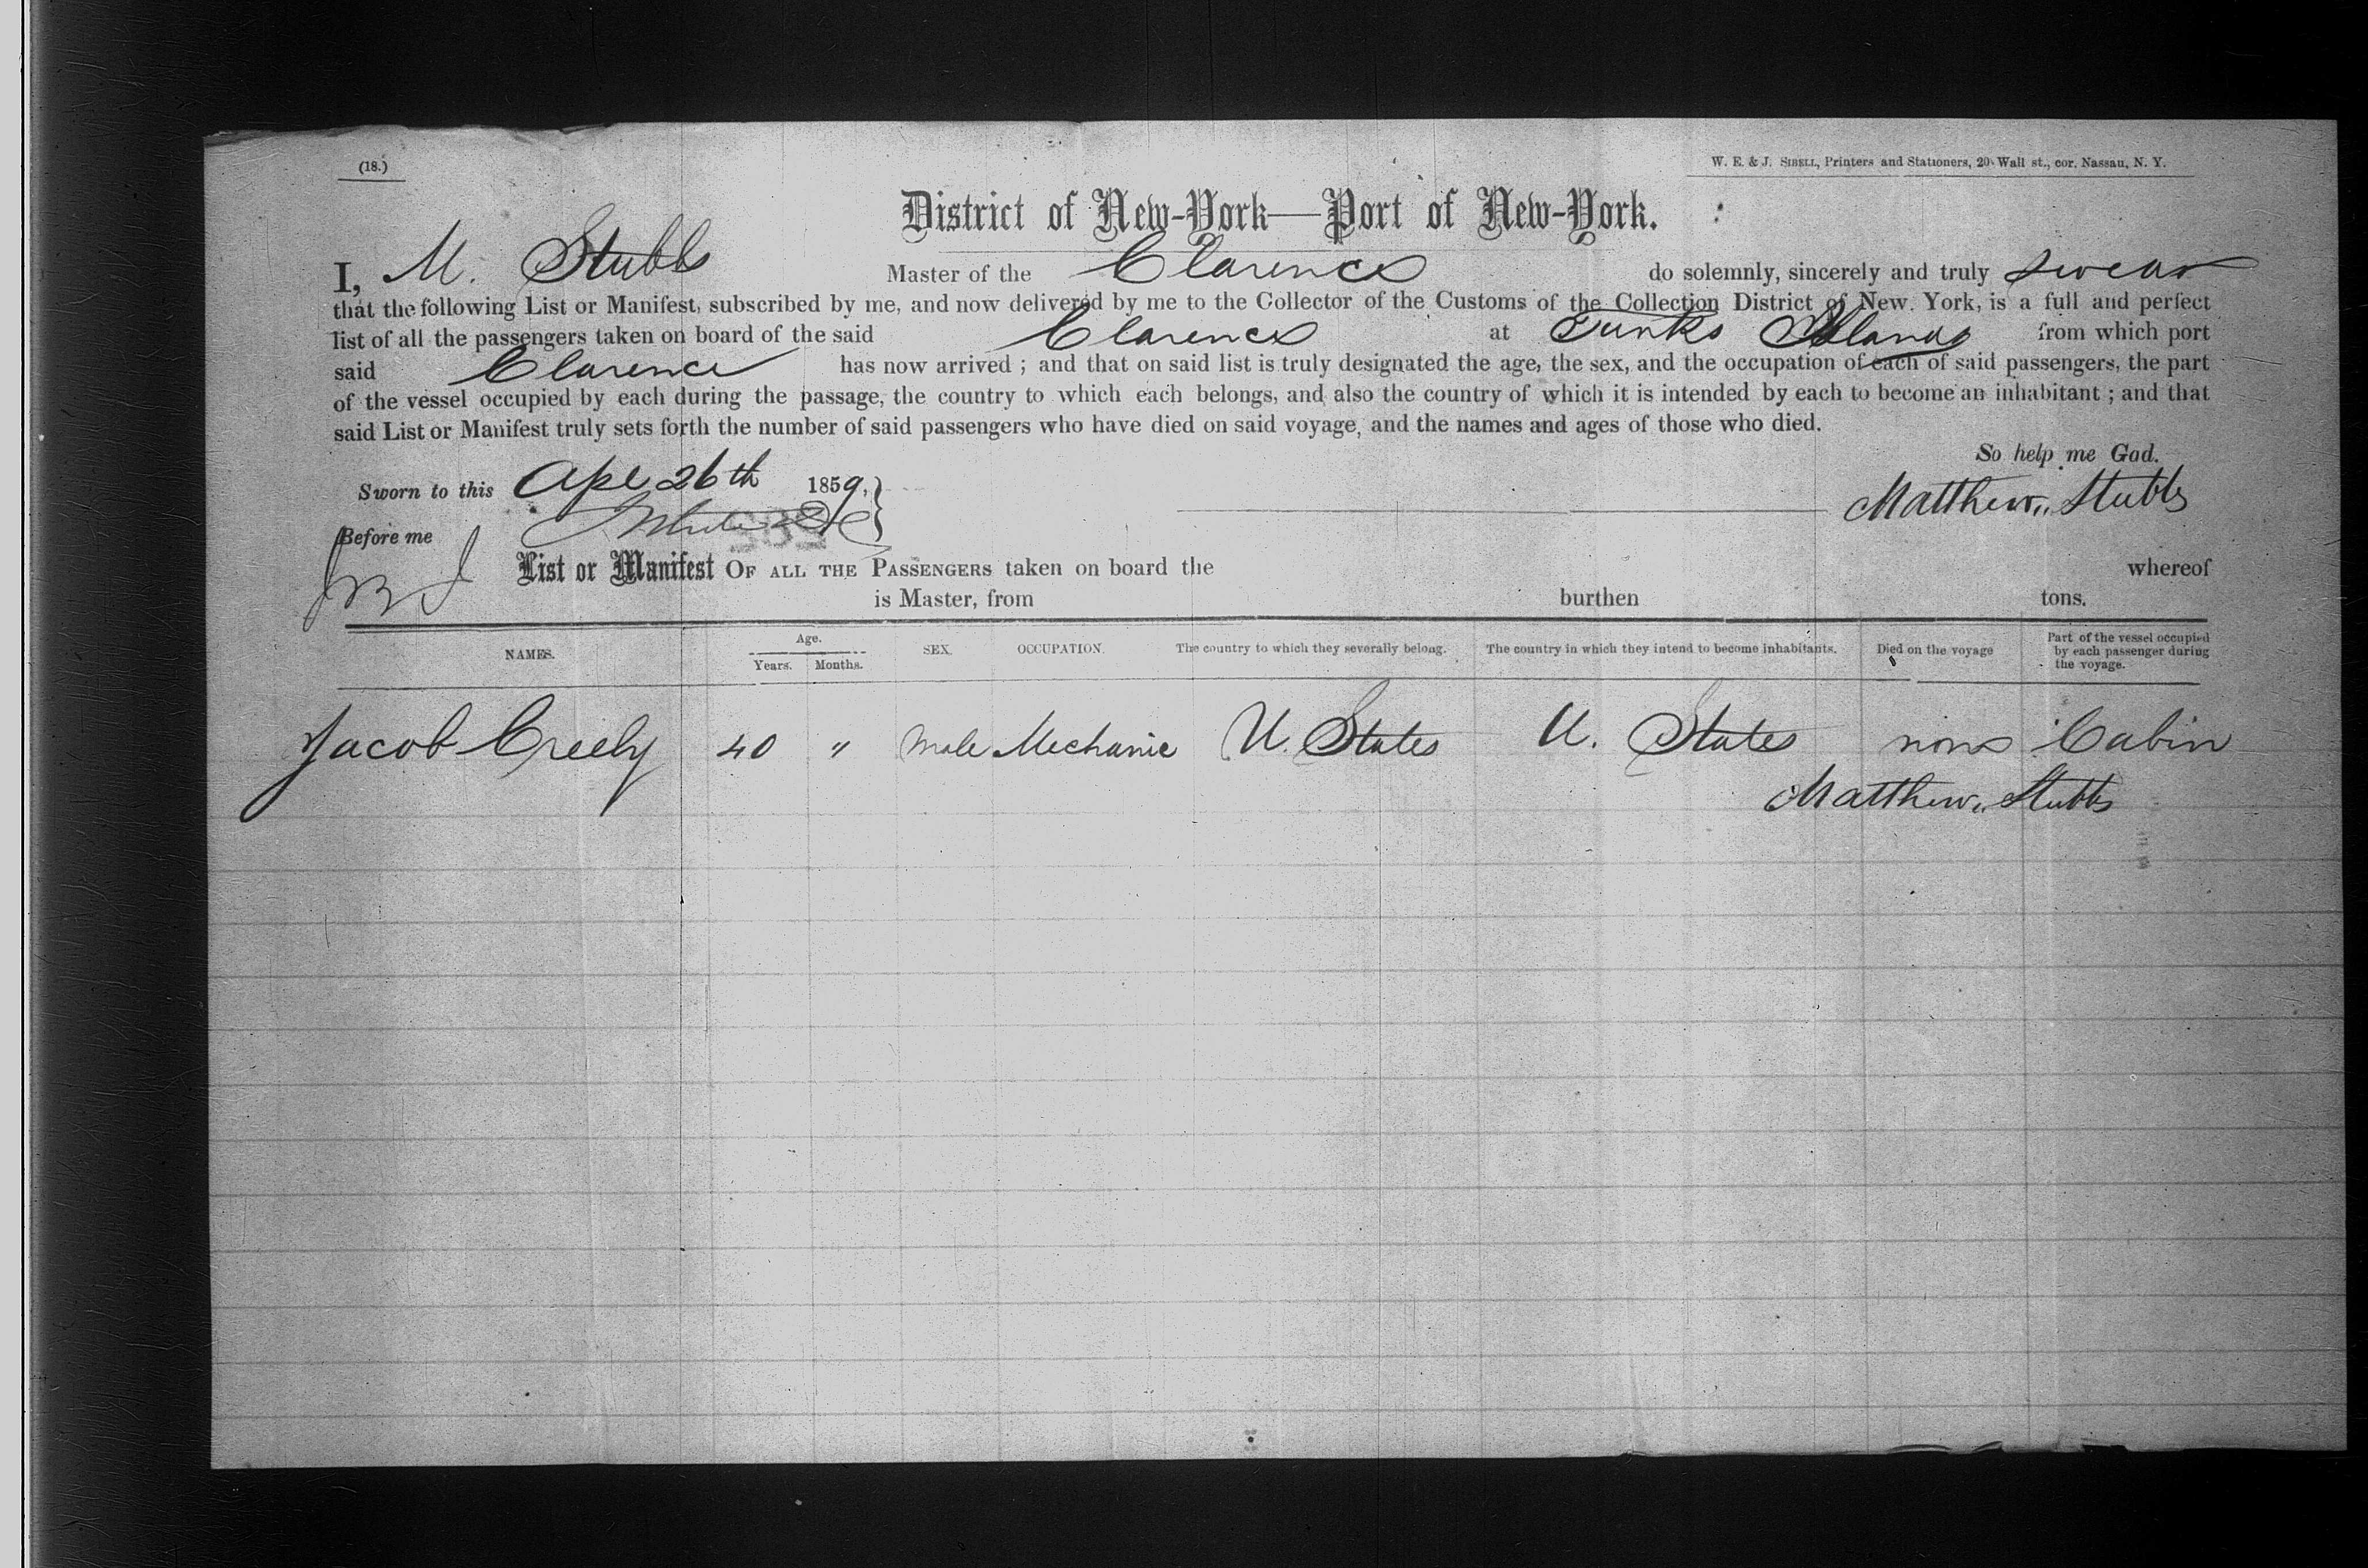 (18.)
W. E. & J. SIBELL, Printers and Stationers, 20 Wall st., cor. Nassau, N. Y.
District of New-York—Port of New-York.
I, M. Stubbs Master of the Clarence do solemnly, sincerely and truly swear
that the following List or Manifest, subscribed by me, and now delivered by me to the Collector of the Customs of the Collection District of New York, is a full and perfect
list of all the passengers taken on board of the said Clarence at Turks Island from which port
said Clarence has now arrived ; and that on said list is truly designated the age, the sex, and the occupation of each of said passengers, the part
of the vessel occupied by each during the passage, the country to which each belongs, and also the country of which it is intended by each to become an inhabitant ; and that
said List or Manifest truly sets forth the number of said passengers who have died on said voyage, and the names and ages of those who died.
So help me God.
Sworn to this Apl 26th 1859,
Matthew Stubbs
Before me
List or Manifest OF ALL THE PASSENGERS taken on board the whereof
is Master, from burthen tons.
NAMES. Age. Years. Months. SEX. OCCUPATION. The country to which they severally belong. The country in which they intend to become inhabitants. Died on the voyage Part of the vessel occupied by each passenger during the voyage.
Jacob Creely 40 " Male Mechanic U. States U. States none Cabin
Matthew Stubbs